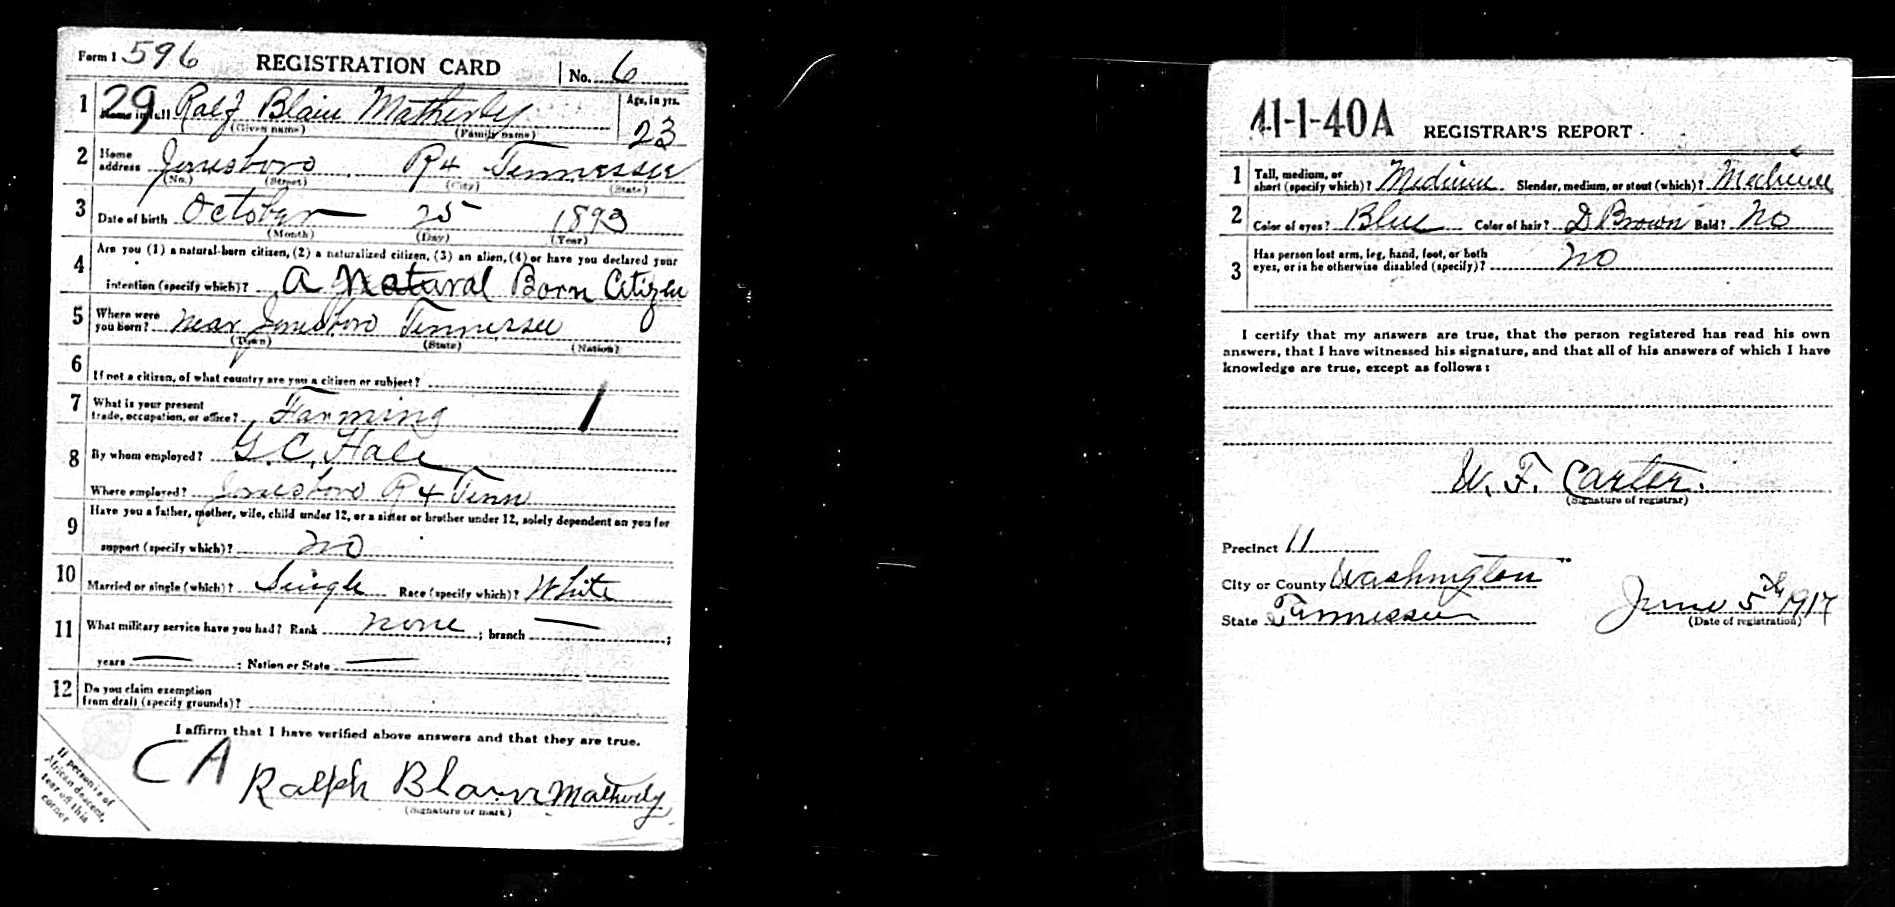 Form 1 596 REGISTRATION CARD No. 6
1 29 Name in full Ralf Blair Matherly Age, in yrs.
(Given name) (Family name) 23
2 Home address Jonesboro R4 Tennessee
(No.) (Street) (City) (State)
3 Date of birth October 25 1893
(Month) (Day) (Year)
4 Are you (1) a natural-born citizen, (2) a naturalized citizen, (3) an alien, (4) or have you declared your
intention (specify which)? A Natural Born Citizen
5 Where were you born? near Jonesboro Tennessee
(Town) (State) (Nation)
6 If not a citizen, of what country are you a citizen or subject?
7 What is your present trade, occupation, or office? Farming 1
8 By whom employed? G. C. Hale
Where employed? Jonesboro R4 Tenn
9 Have you a father, mother, wife, child under 12, or a sister or brother under 12, solely dependent on you for
support (specify which)? no
10 Married or single (which)? Single Race (specify which)? White
11 What military service have you had? Rank none ; branch — ;
years — ; Nation or State —
12 Do you claim exemption
from draft (specify grounds)?
I affirm that I have verified above answers and that they are true.
C A
Ralph Blair Matherly
(Signature or mark)
If person is of
African descent,
tear off this
corner
41-1-40A REGISTRAR'S REPORT
1 Tall, medium, or
short (specify which)? Medium Slender, medium, or stout (which)? Medium
2 Color of eyes? Blue Color of hair? D Brown Bald? No
3 Has person lost arm, leg, hand, foot, or both
eyes, or is he otherwise disabled (specify)? no
I certify that my answers are true, that the person registered has read his own
answers, that I have witnessed his signature, and that all of his answers of which I have
knowledge are true, except as follows:
W. F. Carter.
(Signature of registrar)
Precinct 11
City or County Washington
State Tennessee June 5th 1917
(Date of registration)